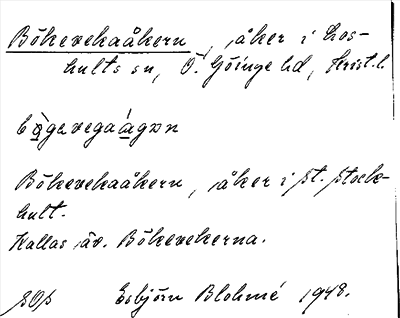 Bökevekaåkern, åker i Los-
hults sn, Ö. Göinge hd, Krist. l.
Bökevekaåkern, åker i st. Stock-
hult.
Kallas äv. Bökevekerna.
Esbjörn Blohmé 1948.